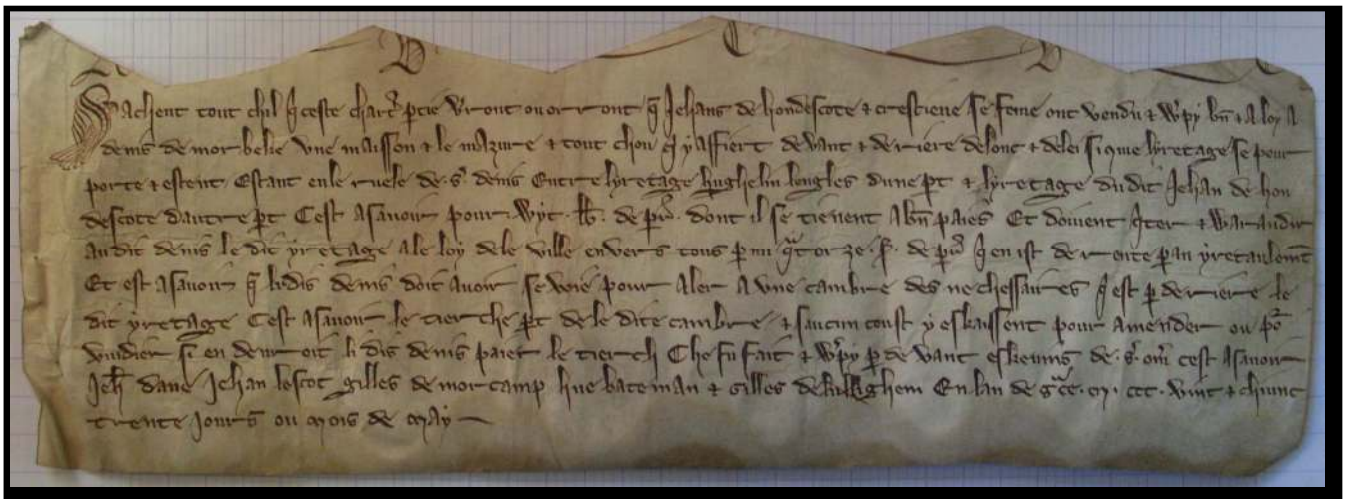 Sachent tout chil q̄ ceste chart̄ ptie vront ou orront q̄ Jehans de hondescote & crestiene se feme ont vendu & w̄py bn̄ & A loy A
denis de morbeke vne maisson & le mazure & tout chou q̄ y affiert devant & derriere delonc & delei si que lyretage se pour
porte & estent Estant en le ruele de .s̄. denis Entre lyretage hughelin lengles dune p̄t & lyretage du dit Jehan de hon
descote dautre p̄t Cest Asavoir pour .wyt. lb̄. de p̄is. dont il se tienent A bn̄ paiés Et doivent q̄ter & warandir
au dit denis le dit yretage A le loy de le ville envers tous p̄mi q̄torze .s̄. de p̄is q̄ en ist de rente p̄an yretaulemt̄
Et est Asavoir q̄ li dis denis doit Avoir se voie pour Aler A vne cambre des nechessaires q̄ est p̄ derriere le
dit yretage Cest Asavoir le tierche p̄t de le dite cambre & saucun coust y eskaissent pour Amender ou po᷒
vuidier si en devroit li dis denis paier le tierch Che fu fait & w̄py p̄ devant eskevins de .s̄. om̄ cest Asavoir
Jeh̄ dane Jehan lescot gilles de morcamp hue bateman & Gilles En lan de gc̄e .m. ccc. vint & chiunc
trente Jours ou mois de may